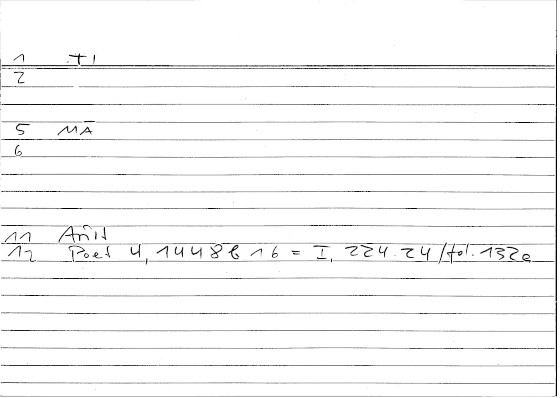 1 .TI
2
5 MĀ
6
11
12 Poet 4, 1448b 16 = I, 224.24/fol. 132a